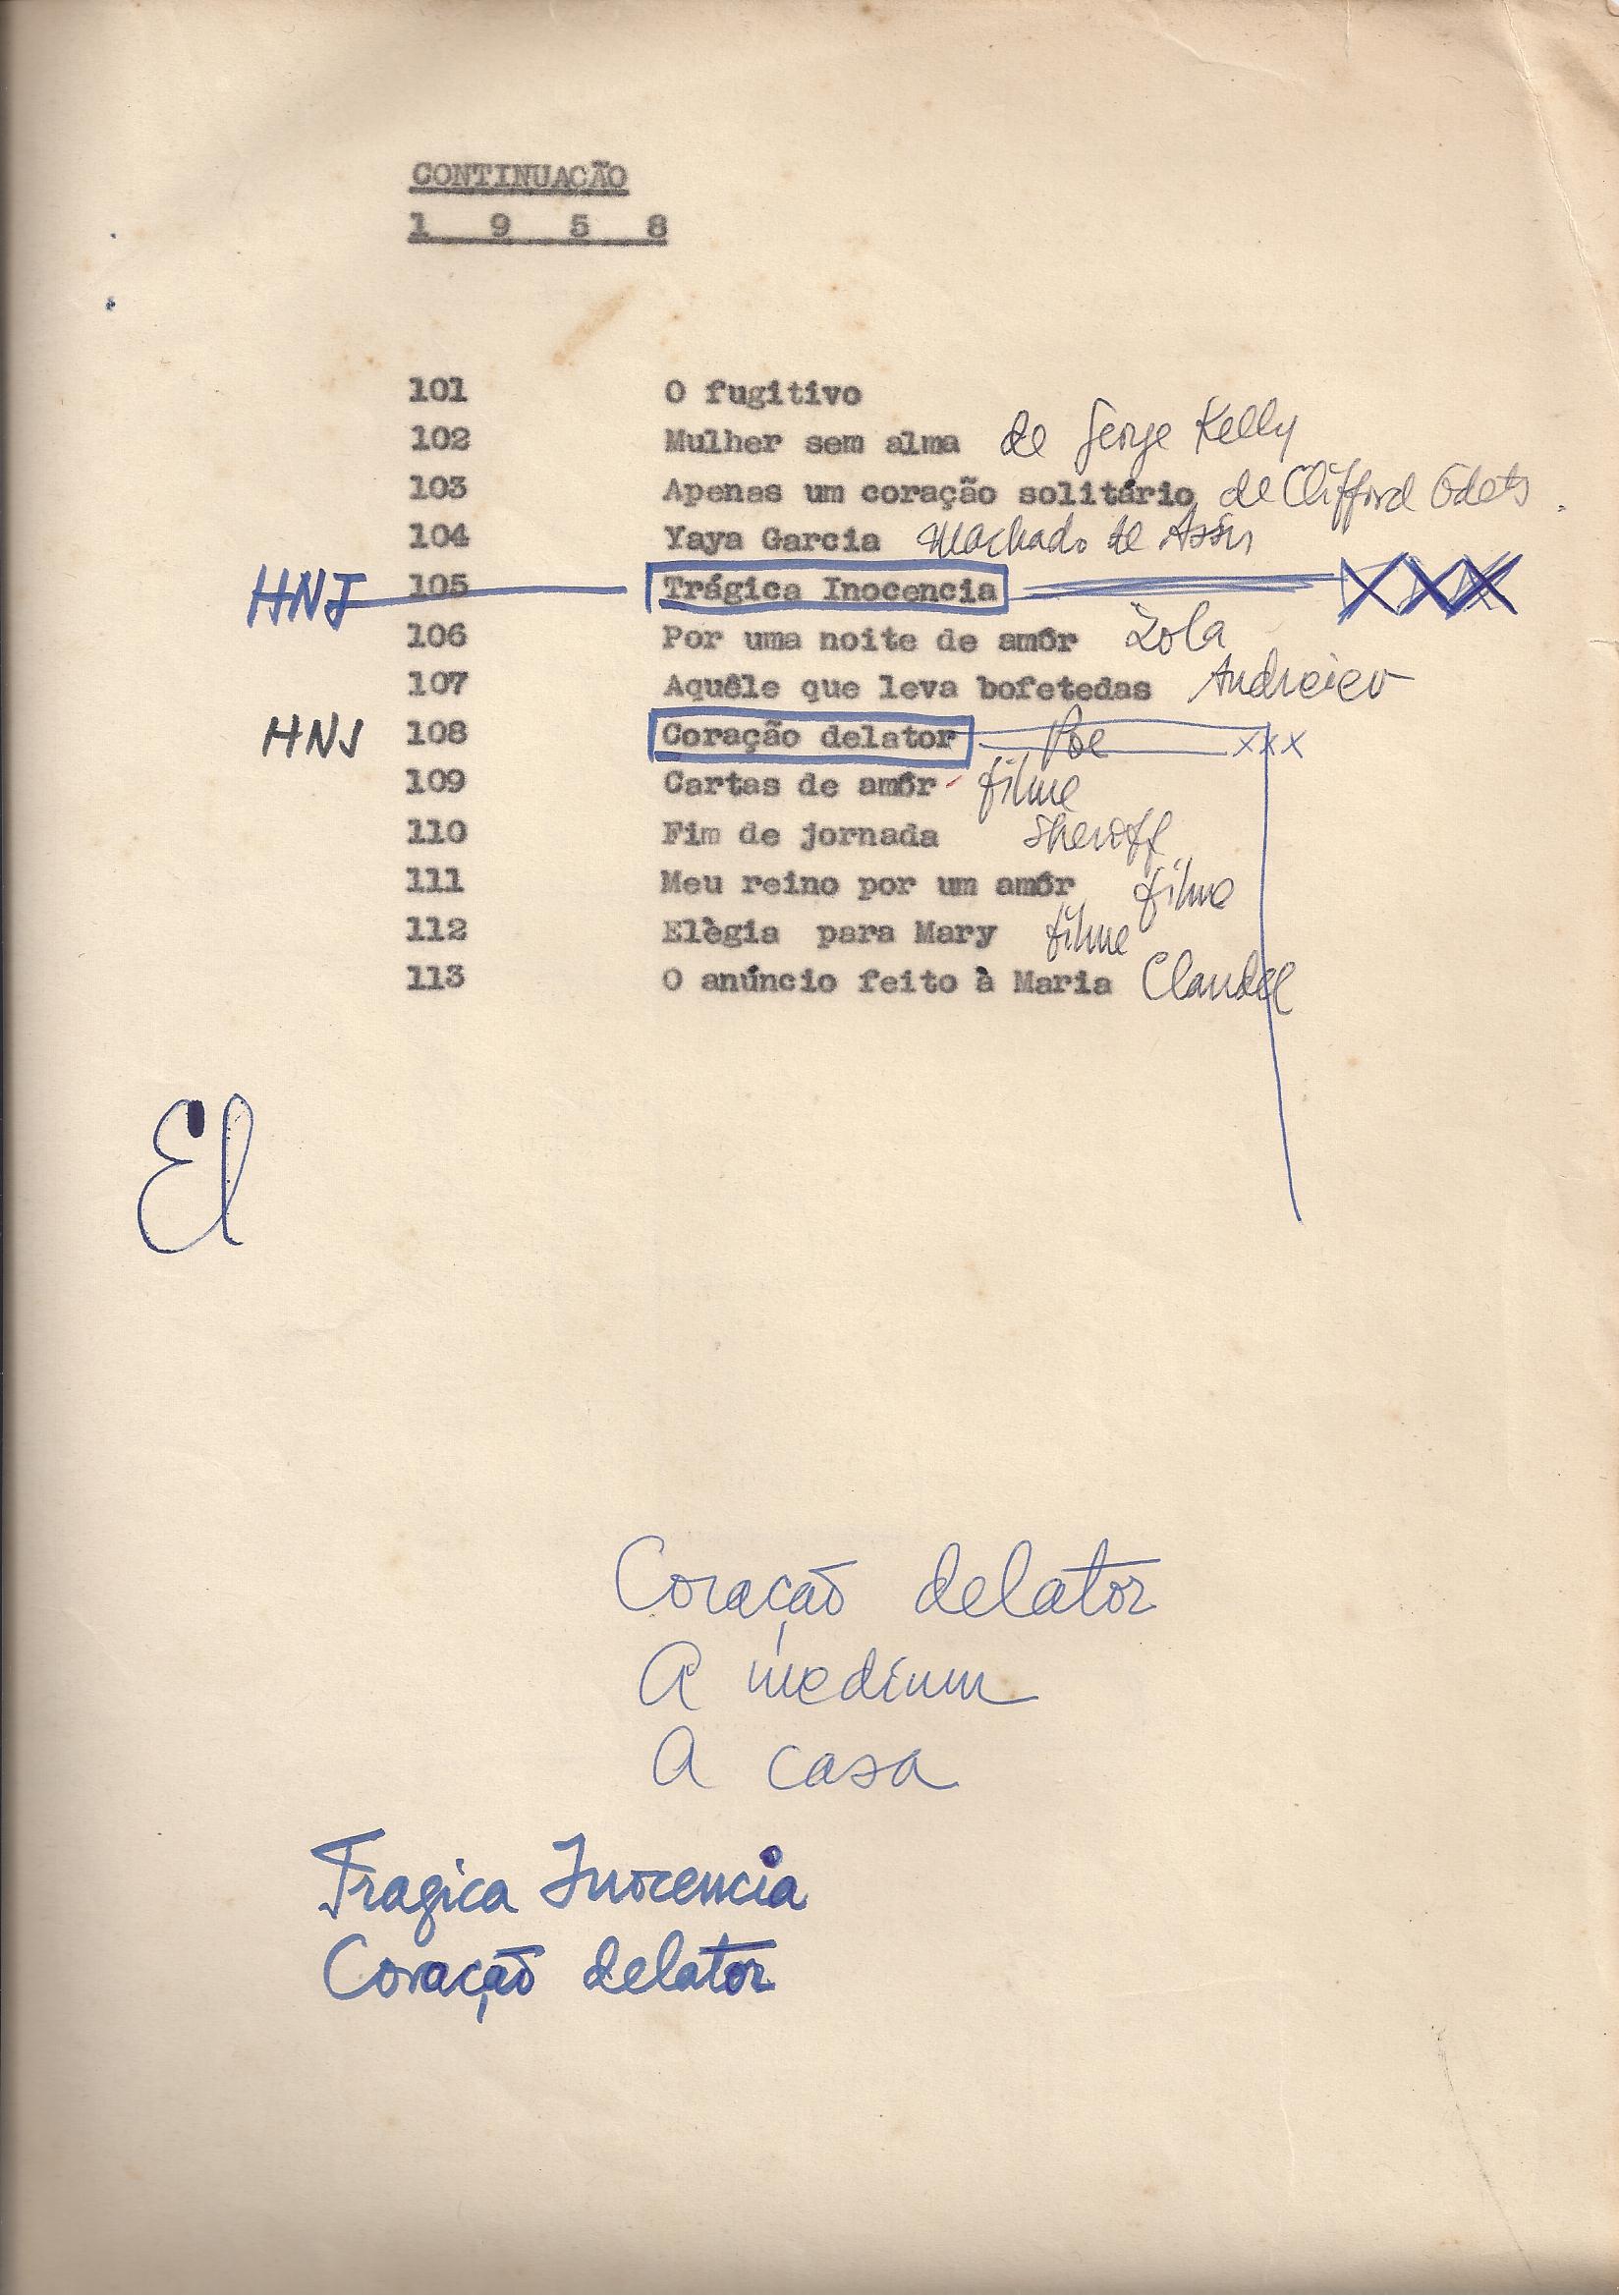 CONTINUAÇÃO
1 9 5 8
101 O fugitivo
102 Mulher sem alma de George Kelly
103 Apenas um coração solitário de Clifford Odets
104 Yaya Garcia Machado de Assis
HNJ 105 Trágica Inocencia XXX
106 Por uma noite de amôr Zola
107 Aquêle que leva bofetedas Andreiev
HNJ 108 Coração delator Poe xxx
109 Cartas de amôr filme
110 Fim de jornada Sheroff
111 Meu reino por um amôr filme
112 Elègia para Mary filme
113 O anúncio feito à Maria Claudel
El
Coração delator
A medium
A casa
Tragica Inocencia
Coração delator